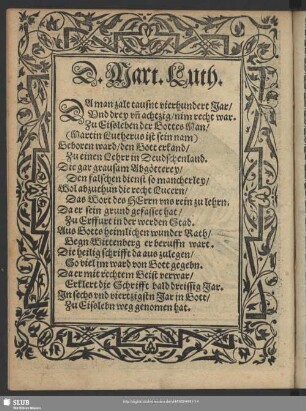 D. Mart. Luth.
DA man zalt tausnt vierhundert Jar/
Vnd drey vñ achtzig/nim recht war.
Zu Eisleben der Gottes Man/
(Martin Lutherus ist sein nam)
Geboren ward/den Gott erkand/
Zu einen Lehrer in Deudschenland.
Die gar grausam Abgötterey/
Den falschen dienst so mancherley/
Wol abzuthun die recht Lucern/
Das Wort des HErrn vns rein zu lehrn.
Da er sein grund gefasset hat/
Zu Erffurt in der werden Stad.
Aus Gotts heimlichen wunder Rath/
Gegn Wittenberg er beruffn wart.
Die heilig schrifft da aus zulegen/
So viel im ward von Gott gegebn.
Da er mit rechtem Geist verwar/
Erklert die Schrifft bald dreissig Jar.
Im sechs vnd viertzigstn Jar in Gott/
Zu Eislebn weg genomen hat.
SLUB